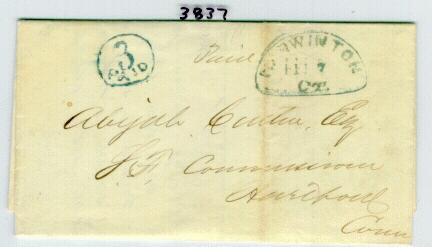 3837
3
PAID
Paid
HARWINTON
FEB 7
CT.
Abijah Catlin, Esq
S. F. Commissioner
Hartford
Conn